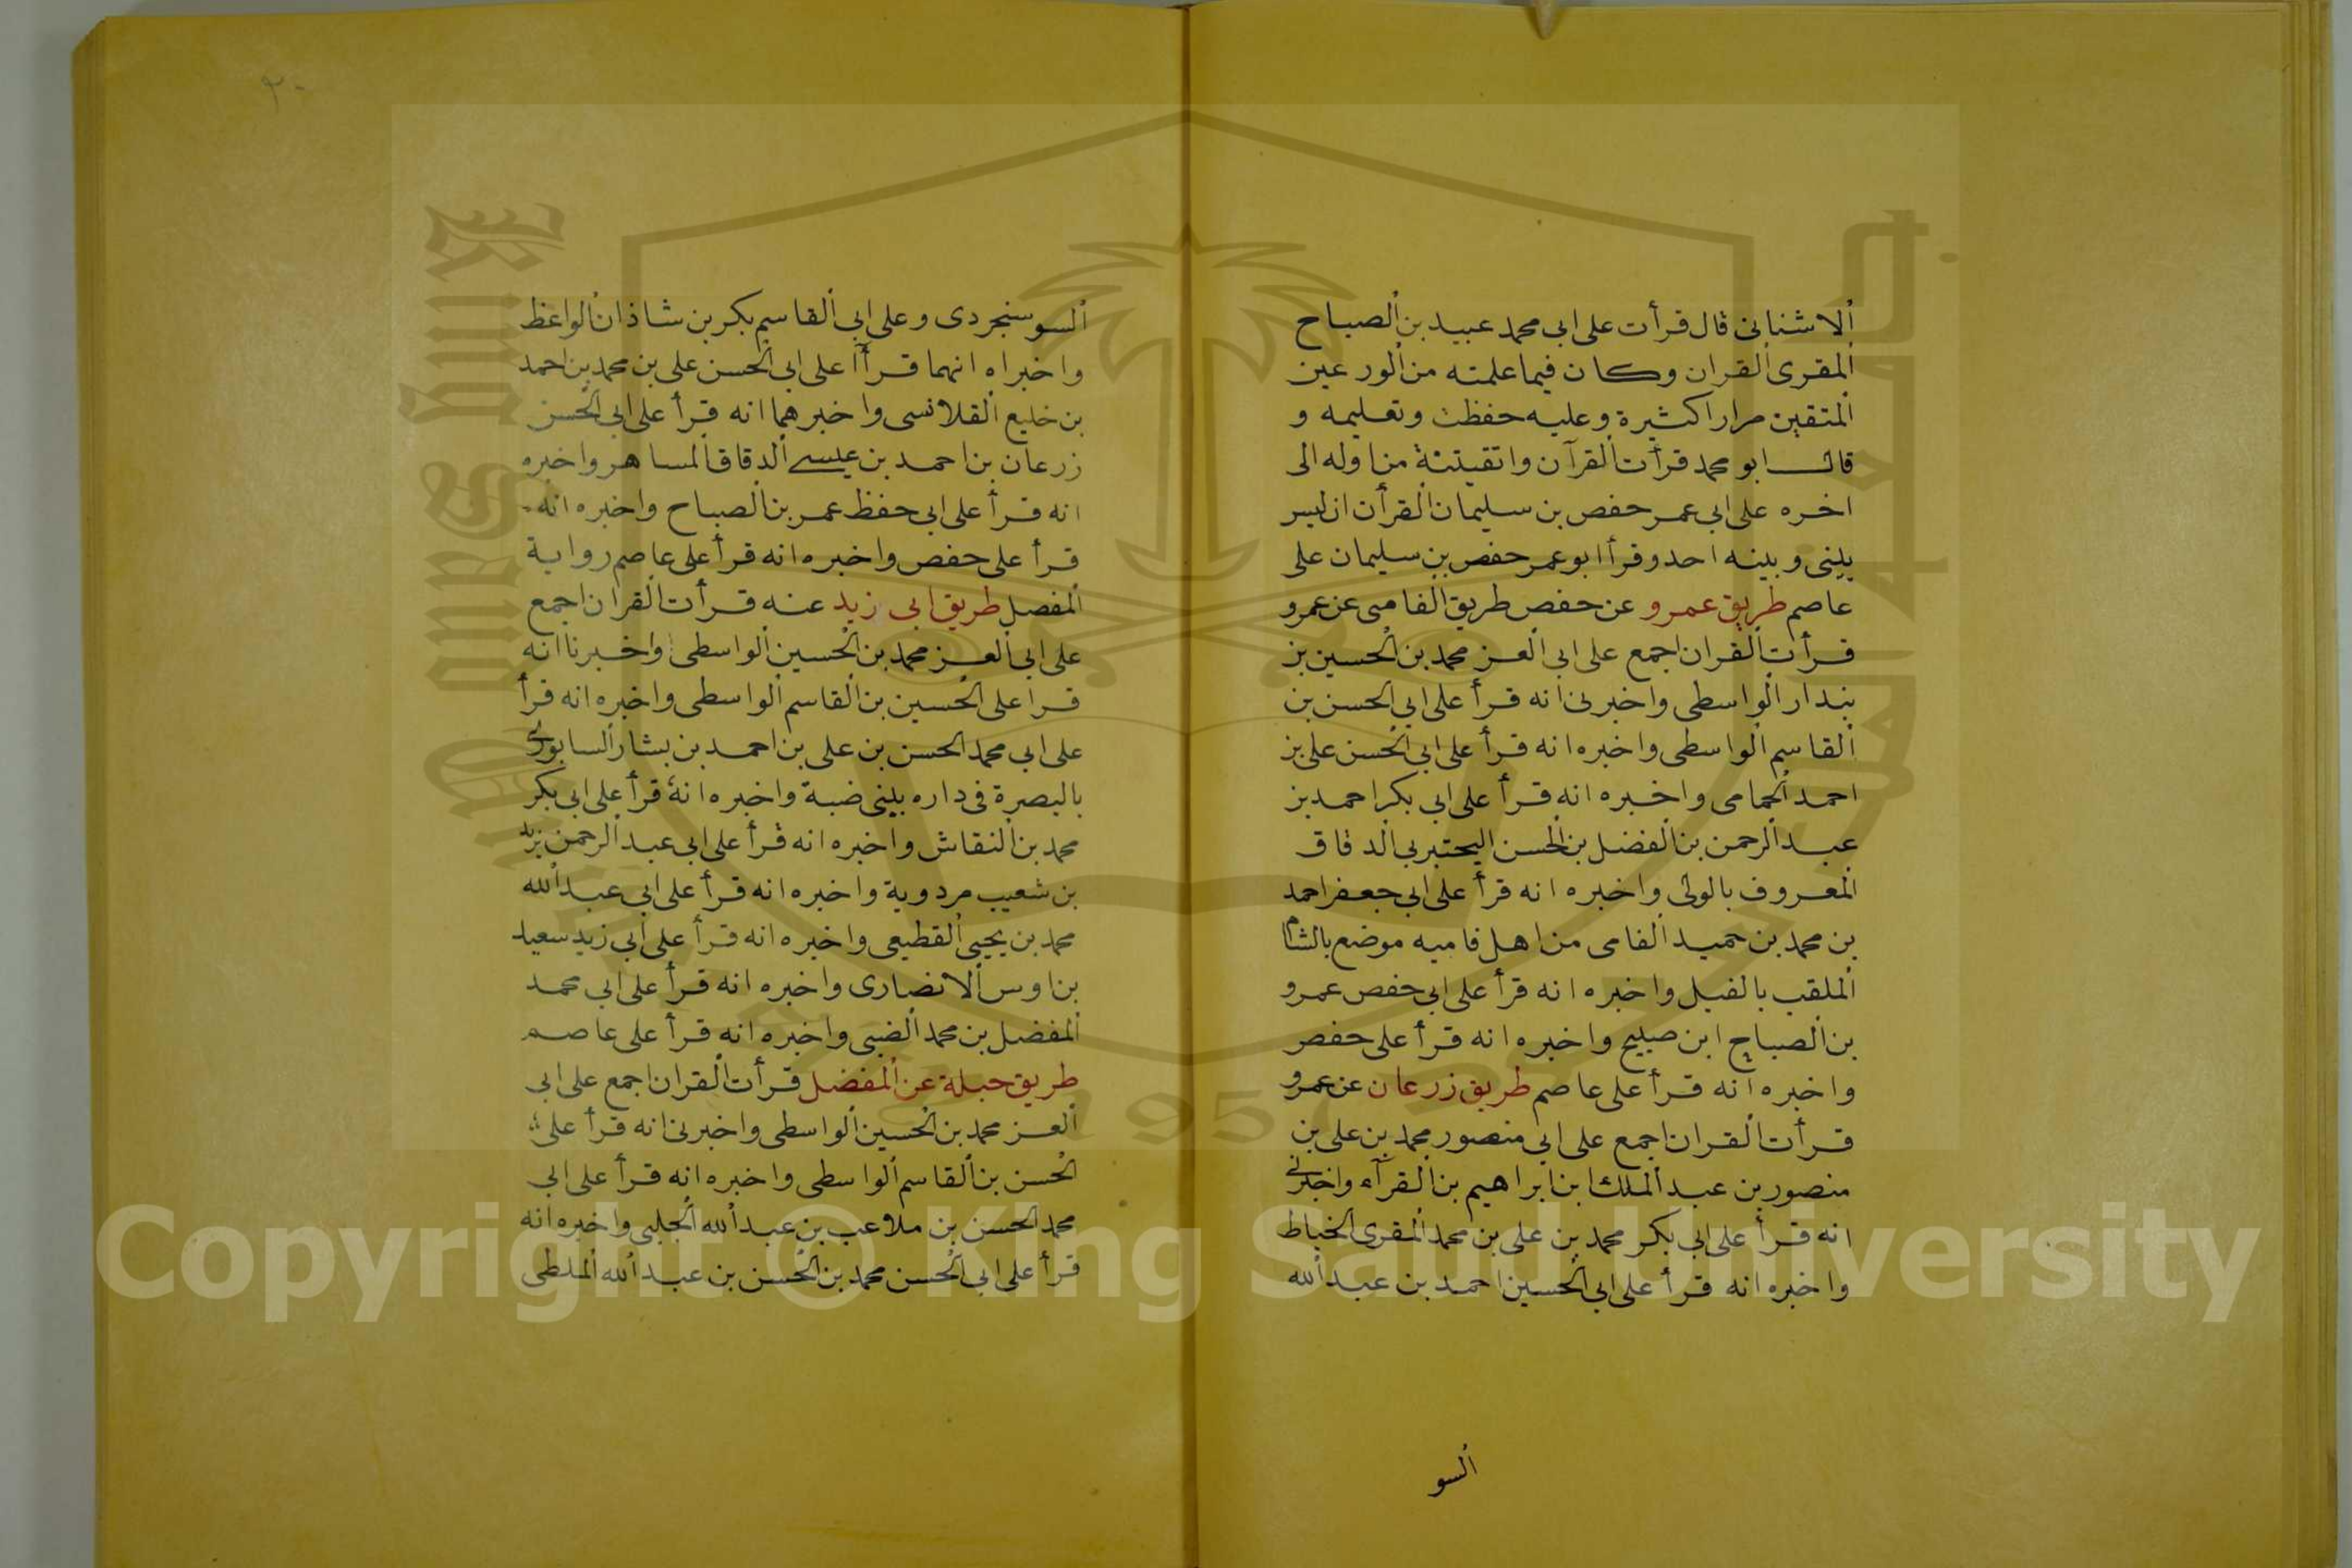 الاشنانى قال قرأت على ابى محمد عبيد بن الصباح
المقرى القران وكان فيما علمته من الورعين
المتقين مرارا كثيرة وعليه حفظت وتعليمه و
قال ابو محمد قرأت القرآن واتقيتنة من اوله الى
اخره على ابي عمر حفص بن سليمان القرأن ان ليس
بينى وبينه احد وقرأ ابو عمر حفص بن سليمان على
عاصم طريق عمرو عن حفص طريق الفامى عن عمرو
قرأت القران اجمع على ابى العز محمد بن الحسين بن
بندار الواسطى واخبرنى انه قرأ على ابي الحسن بن
القاسم الواسطى واخبره انه قرأ على ابي الحسن على بن
احمد الحمامى واخبره انه قرأ على ابى بكر احمد بن
عبد الرحمن بن الفضل بن الحسن البحتبري الدقاق
المعروف بالولى واخبره انه قرأ على ابي جعفر احمد
بن محمد بن حميد الفامى من اهل فاميه موضع بالشام
الملقب بالفيل واخبره انه قرأ على ابي حفص عمرو
بن الصباح ابن صبيح واخبره انه قرأ على حفص
واخبره انه قرأ على عاصم طريق زرعان عن عمرو
قرأت القران اجمع على ابي منصور محمد بن على بن
منصور بن عبد الملك ابن ابراهيم بن القرآء واخبرنى
انه قرأ على ابي بكر محمد بن على بن محمد المقرى الخياط
واخبره انه قرأ على ابي الحسين احمد بن عبد الله
السو
٣٠
السوسنجردى وعلى ابي القاسم بكر بن شاذان الواعظ
واخبراه انهما قرأا على ابى الحسن على بن محمد بن احمد
بن خليع القلانسى واخبرهما انه قرأ على ابي الحسن
زرعان بن احمد بن عيسى الدقاق المساهر واخبره
انه قرأ على ابى حفظ عمر بن الصباح واخبره انه
قرأ على حفص واخبره انه قرأ على عاصم رواية
المفصل طريق ابى زيد عنه قرأت القران اجمع
على ابى العز محمد بن الحسين الواسطى واخبرنا انه
قرا على الحسين بن القاسم الواسطى واخبره انه قرأ
على ابي محمد الحسن بن على بن احمد بن بشار السابورى
بالبصرة فى داره ببنى ضبة واخبره انه قرأ على ابى بكر
محمد بن النقاش واخبره انه قرأ على ابى عبد الرحمن يزيد
بن شعيب مردوية واخبره انه قرأ على ابي عبد الله
محمد بن يحيى القطيعى واخبره انه قرأ على ابي زيد سعيد
بن اوس الانصارى واخبره انه قرأ على ابي محمد
المفضل بن محمد الضبى واخبره انه قرأ على عاصم
طريق جبلة عن المفضل قرأت القران اجمع على ابى
العز محمد بن الحسين الواسطى واخبرنى انه قرأ على
الحسن بن القاسم الواسطى واخبره انه قرأ على ابي
محمد الحسن بن ملاعب بن عبد الله الحلبى واخبره انه
قرأ على ابى الحسن محمد بن الحسن بن عبد الله الملطى
Copyright © King Saud University